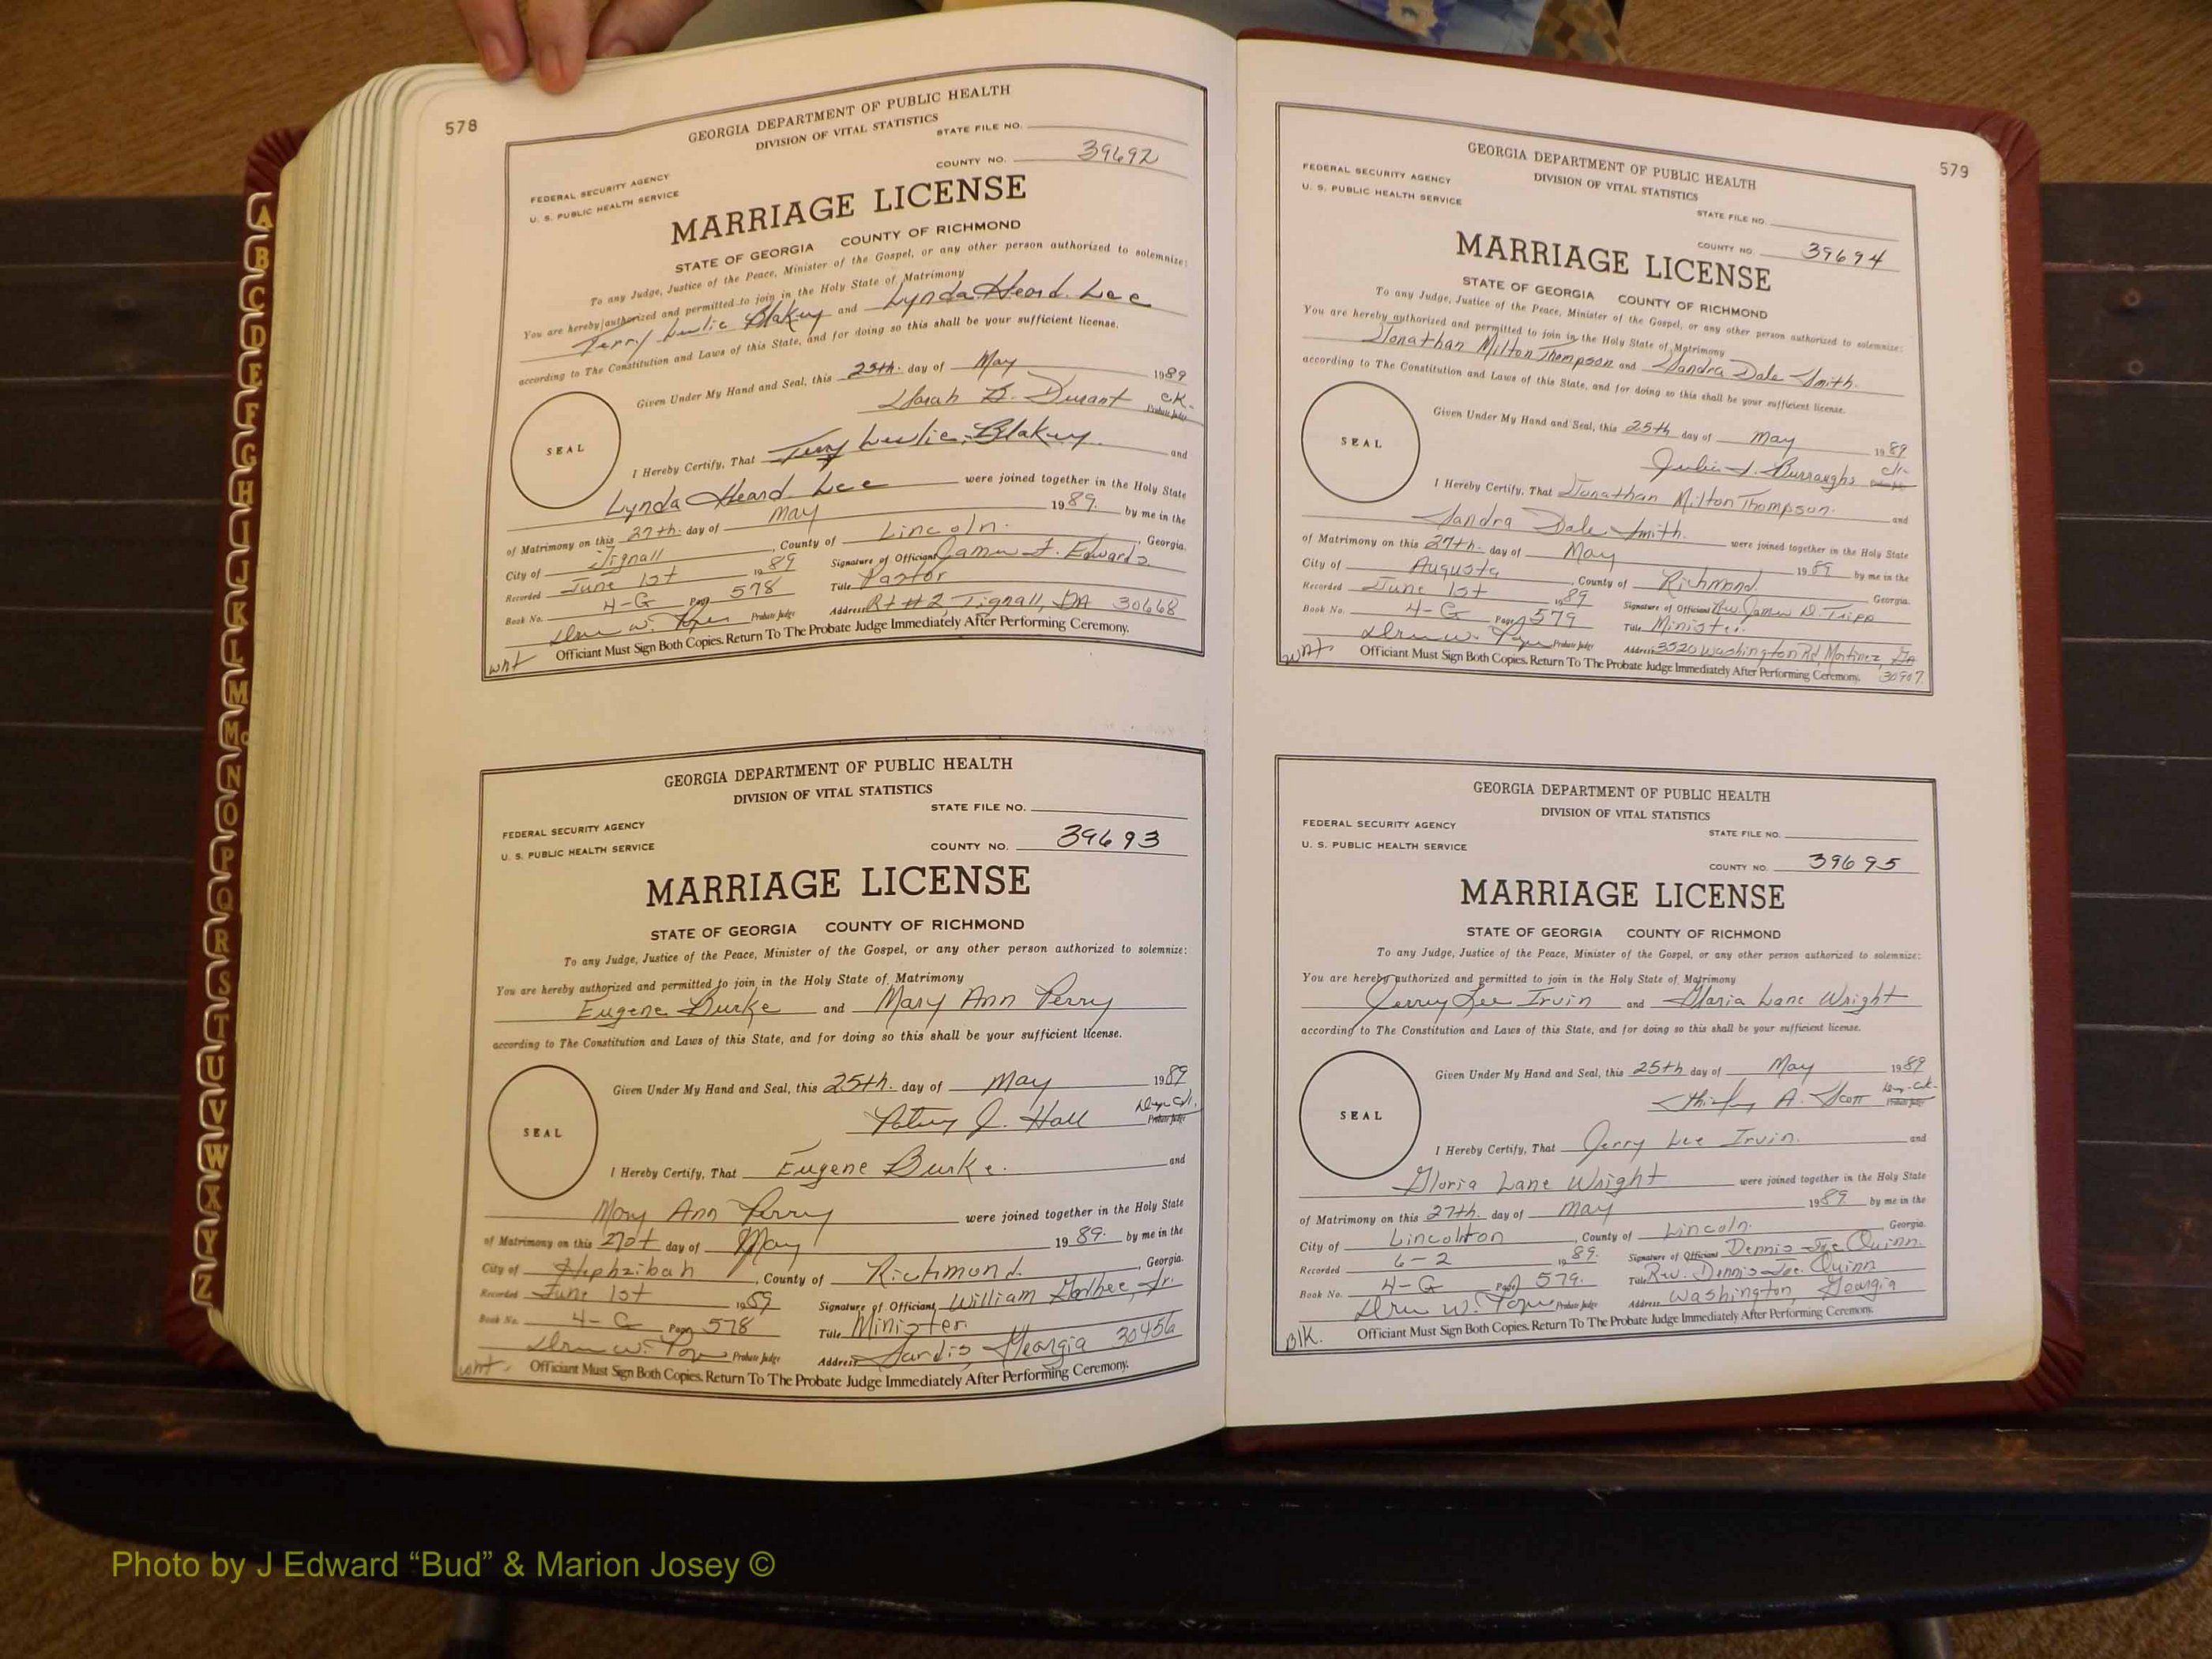 578
GEORGIA DEPARTMENT OF PUBLIC HEALTH
DIVISION OF VITAL STATISTICS
STATE FILE NO.
COUNTY NO. 39692
FEDERAL SECURITY AGENCY
U. S. PUBLIC HEALTH SERVICE
MARRIAGE LICENSE
STATE OF GEORGIA COUNTY OF RICHMOND
To any Judge, Justice of the Peace, Minister of the Gospel, or any other person authorized to solemnize:
You are hereby authorized and permitted to join in the Holy State of Matrimony
Terry Leslie Blakey and Lynda Heard Lee
according to The Constitution and Laws of this State, and for doing so this shall be your sufficient license.
Given Under My Hand and Seal, this 25th. day of May 1989
Sarah B. Durant Clk.
Probate Judge
SEAL
I Hereby Certify, That Terry Leslie Blakey and
Lynda Heard Lee were joined together in the Holy State
of Matrimony on this 27th. day of May 1989. by me in the
City of Tignall, County of Lincoln. Georgia.
Recorded June 1st 1989 Signature of Officiant James F. Edwards.
Book No. 4-G Page 578 Title Pastor
Probate Judge Address Rt #2, Tignall, GA 30668
Officiant Must Sign Both Copies. Return To The Probate Judge Immediately After Performing Ceremony.
wht
GEORGIA DEPARTMENT OF PUBLIC HEALTH
DIVISION OF VITAL STATISTICS
STATE FILE NO.
FEDERAL SECURITY AGENCY
U. S. PUBLIC HEALTH SERVICE
COUNTY NO. 39693
MARRIAGE LICENSE
STATE OF GEORGIA COUNTY OF RICHMOND
To any Judge, Justice of the Peace, Minister of the Gospel, or any other person authorized to solemnize:
You are hereby authorized and permitted to join in the Holy State of Matrimony
Eugene Burke and Mary Ann Perry
according to The Constitution and Laws of this State, and for doing so this shall be your sufficient license.
Given Under My Hand and Seal, this 25th. day of May 1989
Patsy J. Hall Dep. Clk.
Probate Judge
SEAL
I Hereby Certify, That Eugene Burke. and
Mary Ann Perry were joined together in the Holy State
of Matrimony on this day of May 1989. by me in the
City of Hephzibah, County of Richmond. Georgia.
Recorded June 1st 1989 Signature of Officiant William Godbee, Jr.
Book No. 4-G Page 578 Title Minister.
Probate Judge Address Sardis, Georgia 30456
Officiant Must Sign Both Copies. Return To The Probate Judge Immediately After Performing Ceremony.
wht.
579
GEORGIA DEPARTMENT OF PUBLIC HEALTH
DIVISION OF VITAL STATISTICS
FEDERAL SECURITY AGENCY
U. S. PUBLIC HEALTH SERVICE
STATE FILE NO.
COUNTY NO. 39694
MARRIAGE LICENSE
STATE OF GEORGIA COUNTY OF RICHMOND
To any Judge, Justice of the Peace, Minister of the Gospel, or any other person authorized to solemnize:
You are hereby authorized and permitted to join in the Holy State of Matrimony
Jonathan Milton Thompson and Sandra Dale Smith.
according to The Constitution and Laws of this State, and for doing so this shall be your sufficient license.
Given Under My Hand and Seal, this 25th day of May 1989
Burraughs Clk.
Probate Judge
SEAL
I Hereby Certify, That Jonathan Milton Thompson. and
Sandra Dale Smith. were joined together in the Holy State
of Matrimony on this 27th. day of May 1989 by me in the
City of Augusta, County of Richmond. Georgia.
Recorded June 1st 1989 Signature of Officiant Rev. James D. Tripp
Book No. 4-G Page 579 Title Minister.
Probate Judge Address 3520 Washington Rd, Martinez, Ga
Officiant Must Sign Both Copies. Return To The Probate Judge Immediately After Performing Ceremony. 30907.
wht.
GEORGIA DEPARTMENT OF PUBLIC HEALTH
DIVISION OF VITAL STATISTICS
FEDERAL SECURITY AGENCY
STATE FILE NO.
U. S. PUBLIC HEALTH SERVICE
COUNTY NO. 39695
MARRIAGE LICENSE
STATE OF GEORGIA COUNTY OF RICHMOND
To any Judge, Justice of the Peace, Minister of the Gospel, or any other person authorized to solemnize:
You are hereby authorized and permitted to join in the Holy State of Matrimony
Jerry Lee Irvin and Gloria Lane Wright
according to The Constitution and Laws of this State, and for doing so this shall be your sufficient license.
Given Under My Hand and Seal, this 25th day of May 1989
Shirley A. Scott Dep. Clk.
Probate Judge
SEAL
I Hereby Certify, That Jerry Lee Irvin. and
Gloria Lane Wright were joined together in the Holy State
of Matrimony on this 27th. day of May 1989. by me in the
City of Lincolnton, County of Lincoln. Georgia.
Recorded 6-2 1989. Signature of Officiant Dennis Joe Quinn.
Book No. 4-G Page 579. Title Rev. Dennis Joe Quinn
Probate Judge Address Washington, Georgia
Officiant Must Sign Both Copies. Return To The Probate Judge Immediately After Performing Ceremony.
Blk.
A
B
C
D
E
F
G
H
I
J
K
L
M
Mc
N
O
P
Q
R
S
T
U
V
W
X
Y
Z
Photo by J Edward “Bud” & Marion Josey ©